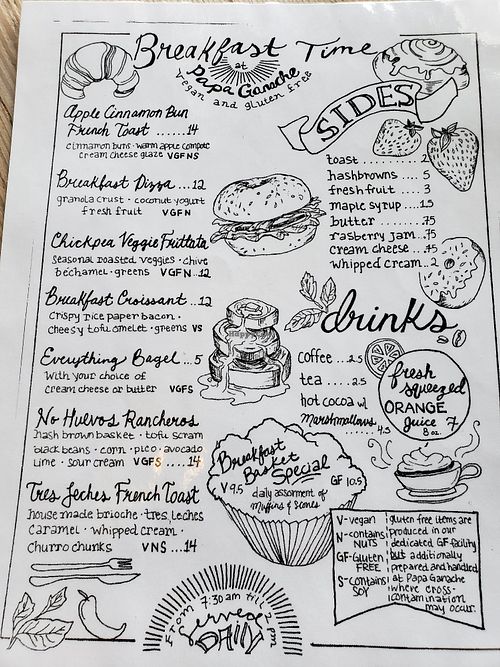 Breakfast Time
at
Papa Ganache
vegan and gluten free
Apple Cinnamon Bun
French Toast ......14
cinnamon buns · warm apple compote
cream cheese glaze VGFNS
Breakfast Pizza ...12
granola crust · coconut yogurt
fresh fruit VGFN
Chickpea Veggie Frittata
seasonal roasted veggies · chive
béchamel · greens VGFN..12
Breakfast Croissant ..12
crispy rice paper bacon ·
cheesy tofu omelet · greens VS
Everything Bagel ...5
with your choice of
cream cheese or butter VGFS
No Huevos Rancheros
hash brown basket · tofu scram
black beans · corn · pico · avocado
lime · sour cream VGFS ....14
Tres Leches French Toast
house made brioche · tres leches
caramel · whipped cream ·
churro chunks VNS ...14
SIDES
toast .......... 2
hashbrowns .... 5
fresh fruit .... 3
maple syrup ....1.5
butter ....... .75
rasberry jam ..75
cream cheese ...75
whipped cream . 2
drinks
coffee ...2.5
tea .....2.5
hot cocoa w/
Marshmallows
......... 4.5
fresh
squeezed
ORANGE
juice 7
8 oz.
Breakfast
Basket
Special
V 9.5
GF 10.5
daily assorment of
Muffins & Scones
V-vegan
N-contains
NUTS
GF-Gluten
FREE
S-contains
SOY
gluten free items are
produced in our
dedicated GF facility
but additionally
prepared and handled
at Papa Ganache
where cross-
contamination
may occur.
From 7:30 am till
Served
DAILY